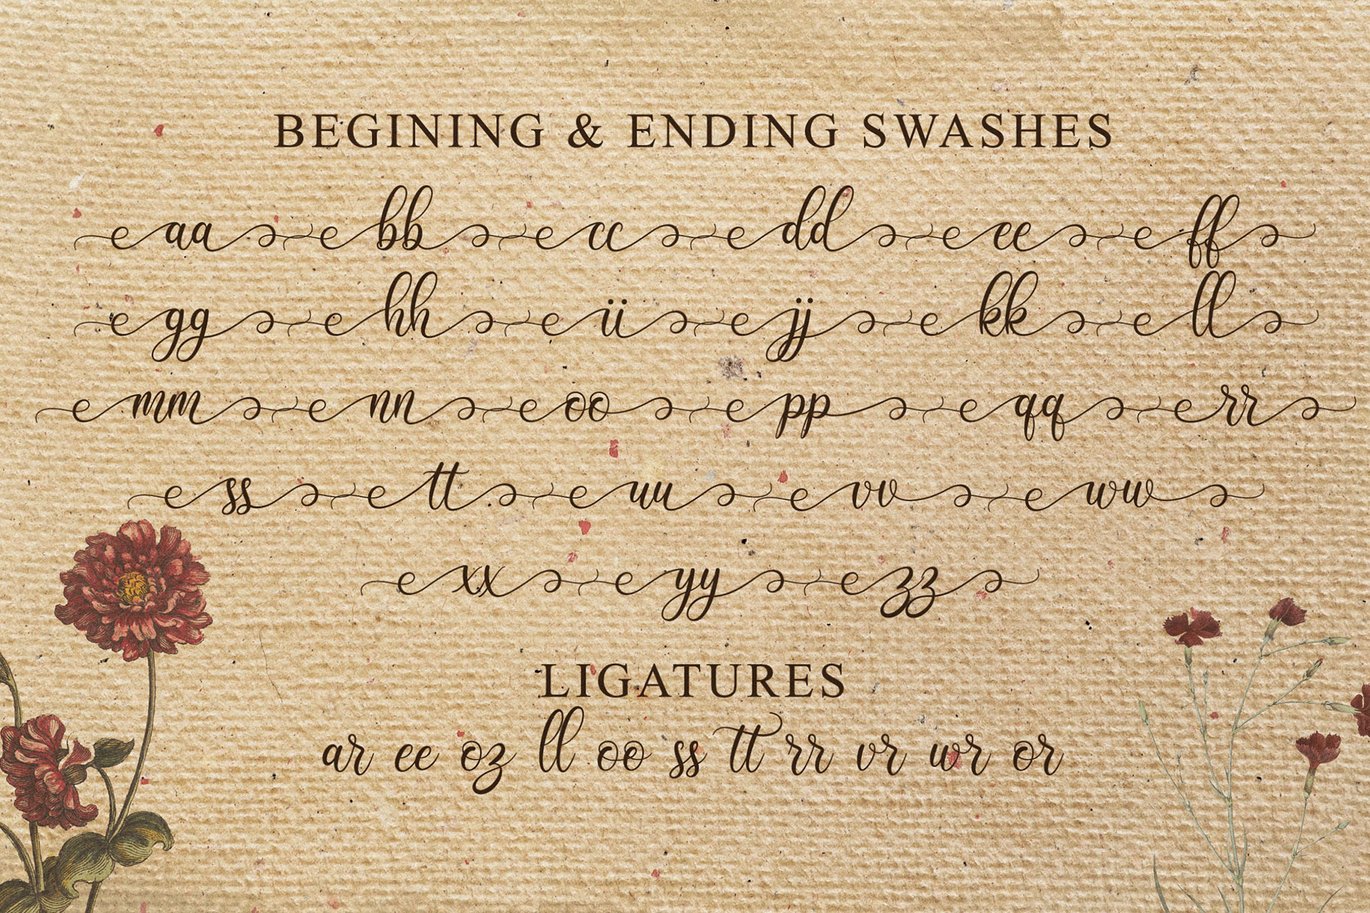 BEGINING & ENDING SWASHES
aa bb cc dd ee ff
gg hh ii jj kk ll
mm nn oo pp qq rr
ss tt uu vv ww
xx yy zz
LIGATURES
ar ee oz ll oo ss tt rr vr wr or